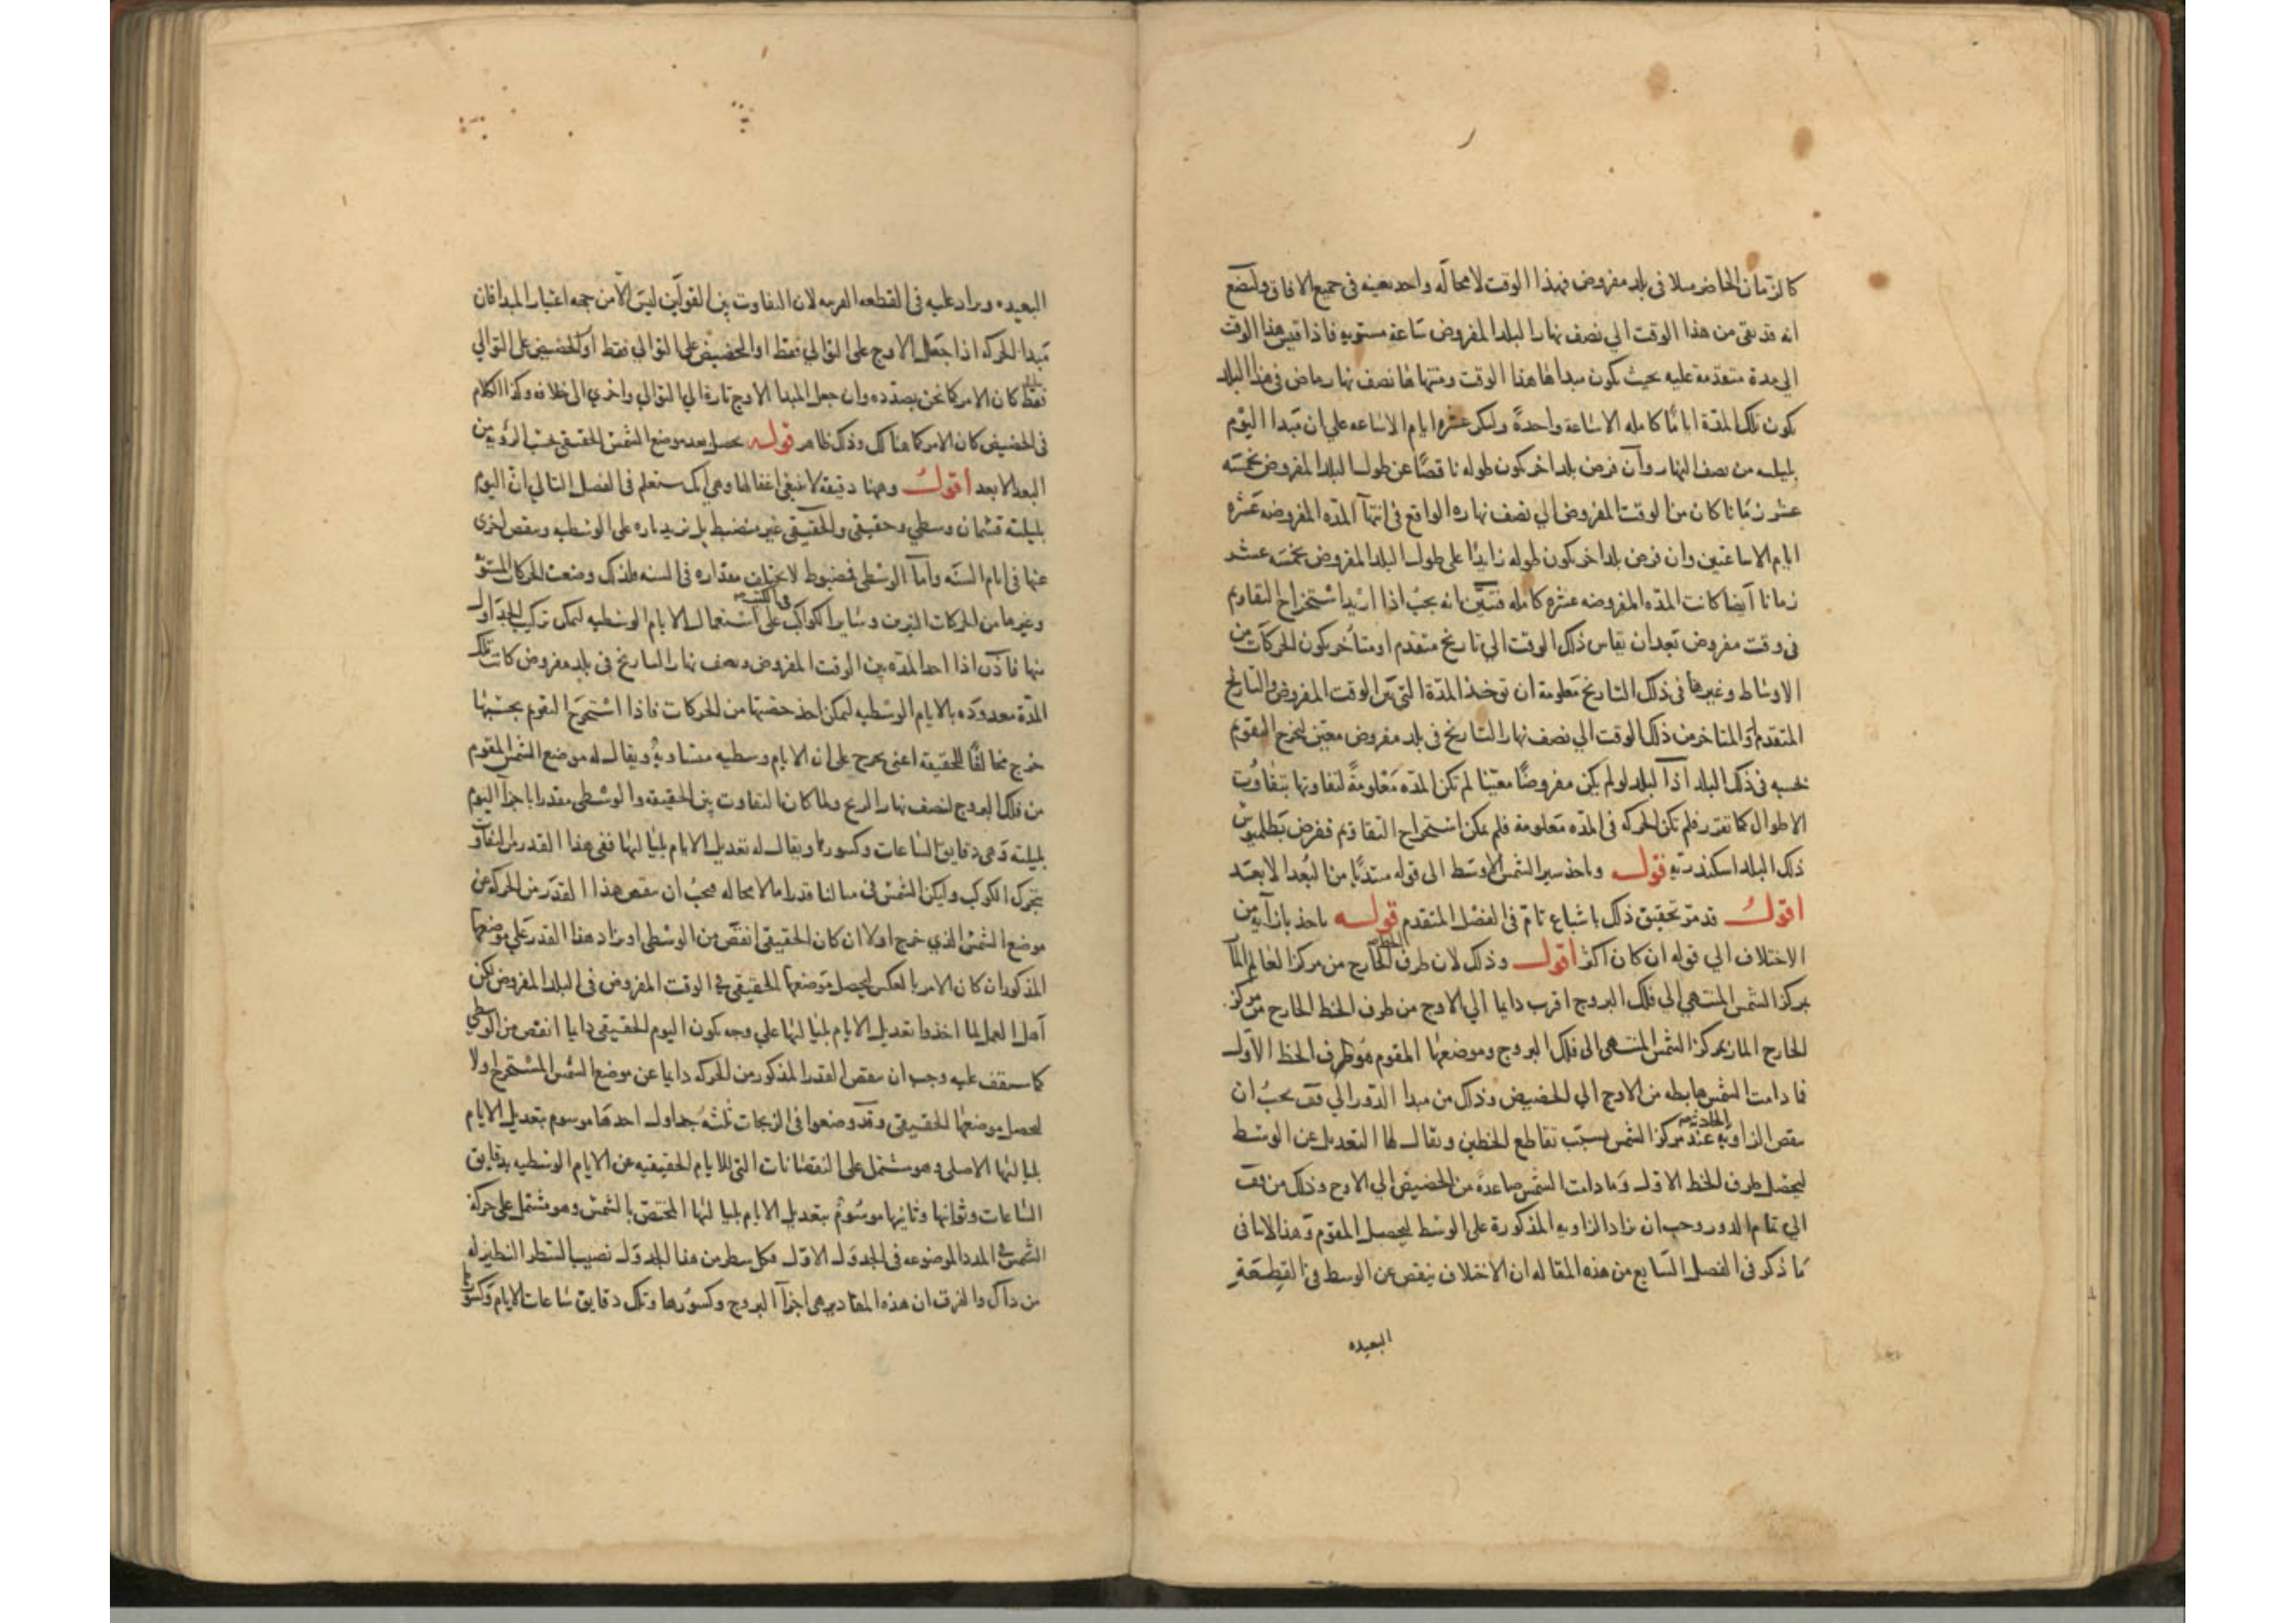 كالزمان الحاضر مثلا فى بلد مفروض فهذا الوقت لا محالة واحد بعينه فى جميع الافاق ولنضع
انه قد بقى من هذا الوقت الي نصف نهار البلد المفروض ساعة مستويه فاذا قيس هذا الوقت
الي مدة متقدمة عليه بحيث يكون مبداها هذا الوقت ومنتهاها نصف نهار ماض فى هذا البلد
يكون تلك المدة اياما كامله الا ساعة واحدة وليكن عشره ايام الا ساعه علي ان مبدا اليوم
بليلته من نصف النهار وان فرض بلد اخر يكون طوله ناقصا عن طول البلد المفروض بخمسه
عشر زمانا كان من الوقت المفروض الي نصف نهاره الواقع فى انتهآ المده المفروضه عشره
ايام الا ساعتين وان فرض بلد اخر يكون طوله زايدا على طول البلد المفروض بخمسه عشر
زمانا ايضا كانت المده المفروضه عشره كامله فتبين انه يجب اذا اريد استخراج التقاويم
فى وقت مفروض بعد ان يقاس ذلك الوقت الي تاريخ متقدم او متأخر يكون للحركات من
الاوساط وغيرها فى ذلك التاريخ معلومة ان توخذ المدة التى بين الوقت المفروض والتاريخ
المتقدم او المتاخر من ذلك الوقت الي نصف نهار التاريخ فى بلد مفروض معين ليخرج التقويم
بحسبه فى ذلك البلد اذ البلد لو لم يكن مفروضا معينا لم تكن المده معلومة لتفاوتها بتفاوت
الاطوال كما تقرر فلم تكن الحركه فى المده معلومة فلم يمكن استخراج التقاويم ففرض بطلميوس
ذلك البلد اسكندريه قوله وناخذ سير الشمس الاوسط الى قوله مبتديا من البعد الابعد
اقول قد مر تحقيق ذلك باشباع تام فى الفصل المتقدم قوله ناخذ بازآيه من
الاختلاف الي قوله ان كان اكثر اقول وذلك لان طرف الخط الخارج من مركز العالم المار
بمركز الشمس المنتهي الي فلك البروج اقرب دايما الي الاوج من طرف الخط الخارج من مركز
الخارج المار بمركز الشمس المنتهى الى فلك البروج وموضعها المقوم هو طرف الخط الاول
فما دامت الشمس هابطه من الاوج الي الحضيض وذلك من مبدا الدور الي قف يجب ان
ينقص الزاويه الحادثه عند مركز الشمس بسبب تقاطع الخطين ويقال لها التعديل عن الوسط
ليحصل طرف الخط الاول وما دامت الشمس صاعدة من الحضيض الي الاوج وذلك من قف
الي تمام الدور وجب ان يزاد الزاويه المذكورة على الوسط ليحصل المقوم وهذا لا ينافى
ما ذكر فى الفصل السابع من هذه المقاله ان الاختلاف ينقص عن الوسط فى القطعة
البعيده
البعيده ويزاد عليه فى القطعه القريبه لان التفاوت بين القولين ليس الا من جهه اعتبار المبدا فان
مبدا الحركه اذا جعل الاوج على التوالي فقط او الحضيض على التوالي فقط او الحضيض على التوالي
فقط كان الامر كما نحن بصدده وان جعل المبدا الاوج تارة الي التوالي واخري الى خلافه وكذا الكلام
فى الحضيض كان الامر كما هناك وذلك ظاهر قوله يحصل بعد موضع الشمس الحقيقى بحسب الرويه من
البعد الابعد أقول وههنا دقيقة لا ينبغى اغفالها وهى انك ستعلم فى الفصل التالي ان اليوم
بليلته قسمان وسطي وحقيقى والحقيقى غير منضبط بل يزيد تاره على الوسطيه وينقص اخرى
عنها فى ايام السنه واما الوسطى فمضبوط لا يختلف مقداره فى السنه فلذلك وضعت الحركات المستويه
وغيرها من الحركات النيرين وساير الكواكب فى الكتب على استعمال الايام الوسطيه ليمكن تركيب الجداول
منها فاذن اذا اخذ المده بين الوقت المفروض ونصف نهار التاريخ فى بلد مفروض كانت تلك
المدة معدوده بالايام الوسطيه ليمكن اخذ حصتها من الحركات فاذا استخرج التقويم بحسبها
خرج مخالفا للحقيقة اعنى يخرج على ان الايام وسطيه متساوية ويقال له موضع الشمس المقوم
من فلك البروج لنصف نهار التاريخ ولما كان التفاوت بين الحقيقه والوسطى مقدرا باجزآ اليوم
بليلته وهى دقايق الساعات وكسورها ويقال له تعديل الايام بلياليها ففى هذا القدر من التفاوت
يتحرك الكوكب وليكن الشمس فى مثالنا قدرا ما لا محاله فيجب ان ينقص هذا القدر من الحركه عن
موضع الشمس الذي خرج اولا ان كان الحقيقى انقص من الوسطى او يزاد هذا القدر على موضعها
المذكور ان كان الامر بالعكس ليحصل موضعها الحقيقى فى الوقت المفروض فى البلد المفروض لكن
اهل العمل لما اخذوا تعديل الايام بلياليها علي وجه يكون اليوم الحقيقى دايما انقص من الوسطي
كما ستقف عليه وجب ان ينقص القدر المذكور من الحركه دايما عن موضع الشمس المستخرج اولا
ليحصل موضعها الحقيقى وقد وضعوا فى الزيجات ثلثه جداول احدها موسوم بتعديل الايام
بلياليها الاصلى وهو مشتمل على النقصانات التى للايام الحقيقيه عن الايام الوسطيه بدقايق
الساعات وثوانيها وثانيها موسوم بتعديل الايام بلياليها المختص بالشمس وهو مشتمل على حركة
الشمس فى المدد الموضوعه فى الجدول الاول فكل سطر من هذا الجدول نصيب السطر النظير له
من ذاك والفرق ان هذه المقادير هى اجزآ البروج وكسورها وتلك دقايق ساعات الايام وكسورها